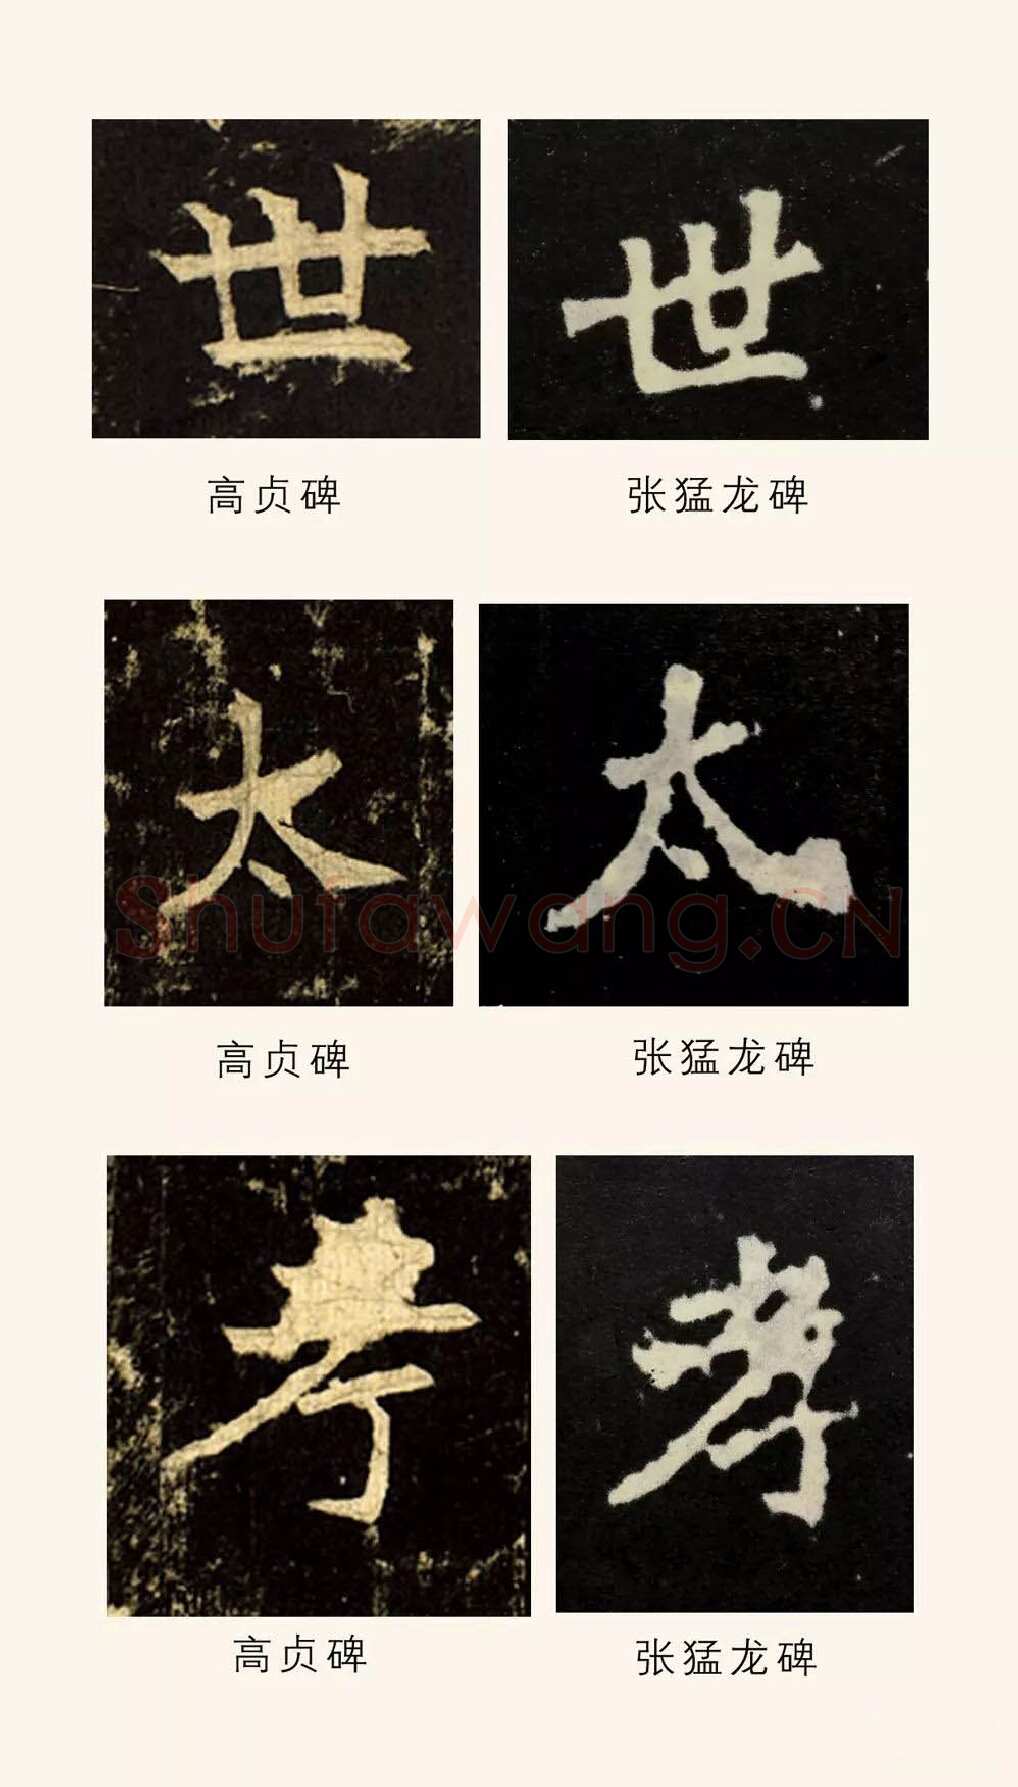 世 世
高贞碑 张猛龙碑
太 太
Shufawang.CN
高贞碑 张猛龙碑
考 考
高贞碑 张猛龙碑